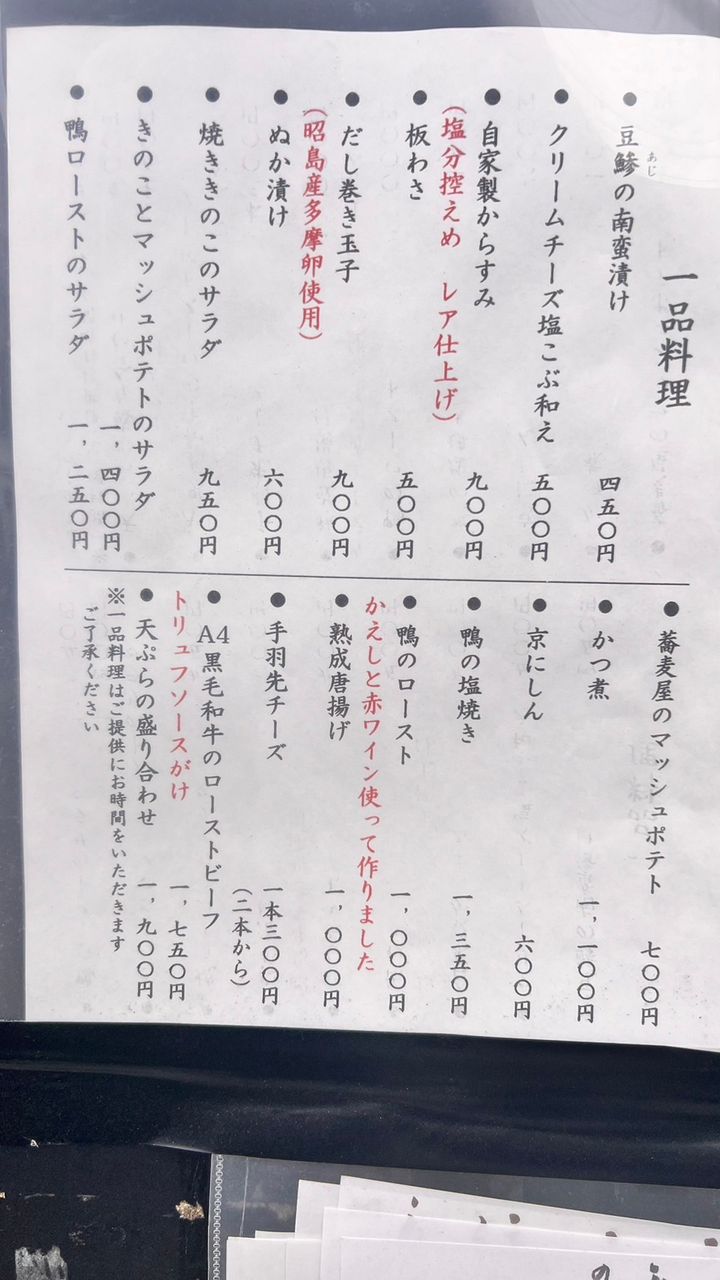 一品料理
● 豆鯵の南蛮漬け 四五〇円
あじ
● クリームチーズ塩こぶ和え 五〇〇円
● 自家製からすみ 九〇〇円
(塩分控えめ レア仕上げ)
● 板わさ 五〇〇円
● だし巻き玉子 九〇〇円
(昭島産多摩卵使用)
● ぬか漬け 六〇〇円
● 焼ききのこのサラダ 九五〇円
● きのことマッシュポテトのサラダ
一,四〇〇円
● 鴨ローストのサラダ 一,二五〇円
● 蕎麦屋のマッシュポテト 七〇〇円
● かつ煮 一,一〇〇円
● 京にしん 六〇〇円
● 鴨の塩焼き 一,三五〇円
● 鴨のロースト 一,〇〇〇円
かえしと赤ワイン使って作りました
● 熟成唐揚げ 一,〇〇〇円
● 手羽先チーズ 一本三〇〇円
(二本から)
● A4黒毛和牛のローストビーフ
トリュフソースがけ 一,七五〇円
● 天ぷらの盛り合わせ 一,九〇〇円
※一品料理はご提供にお時間をいただきます
ご了承ください